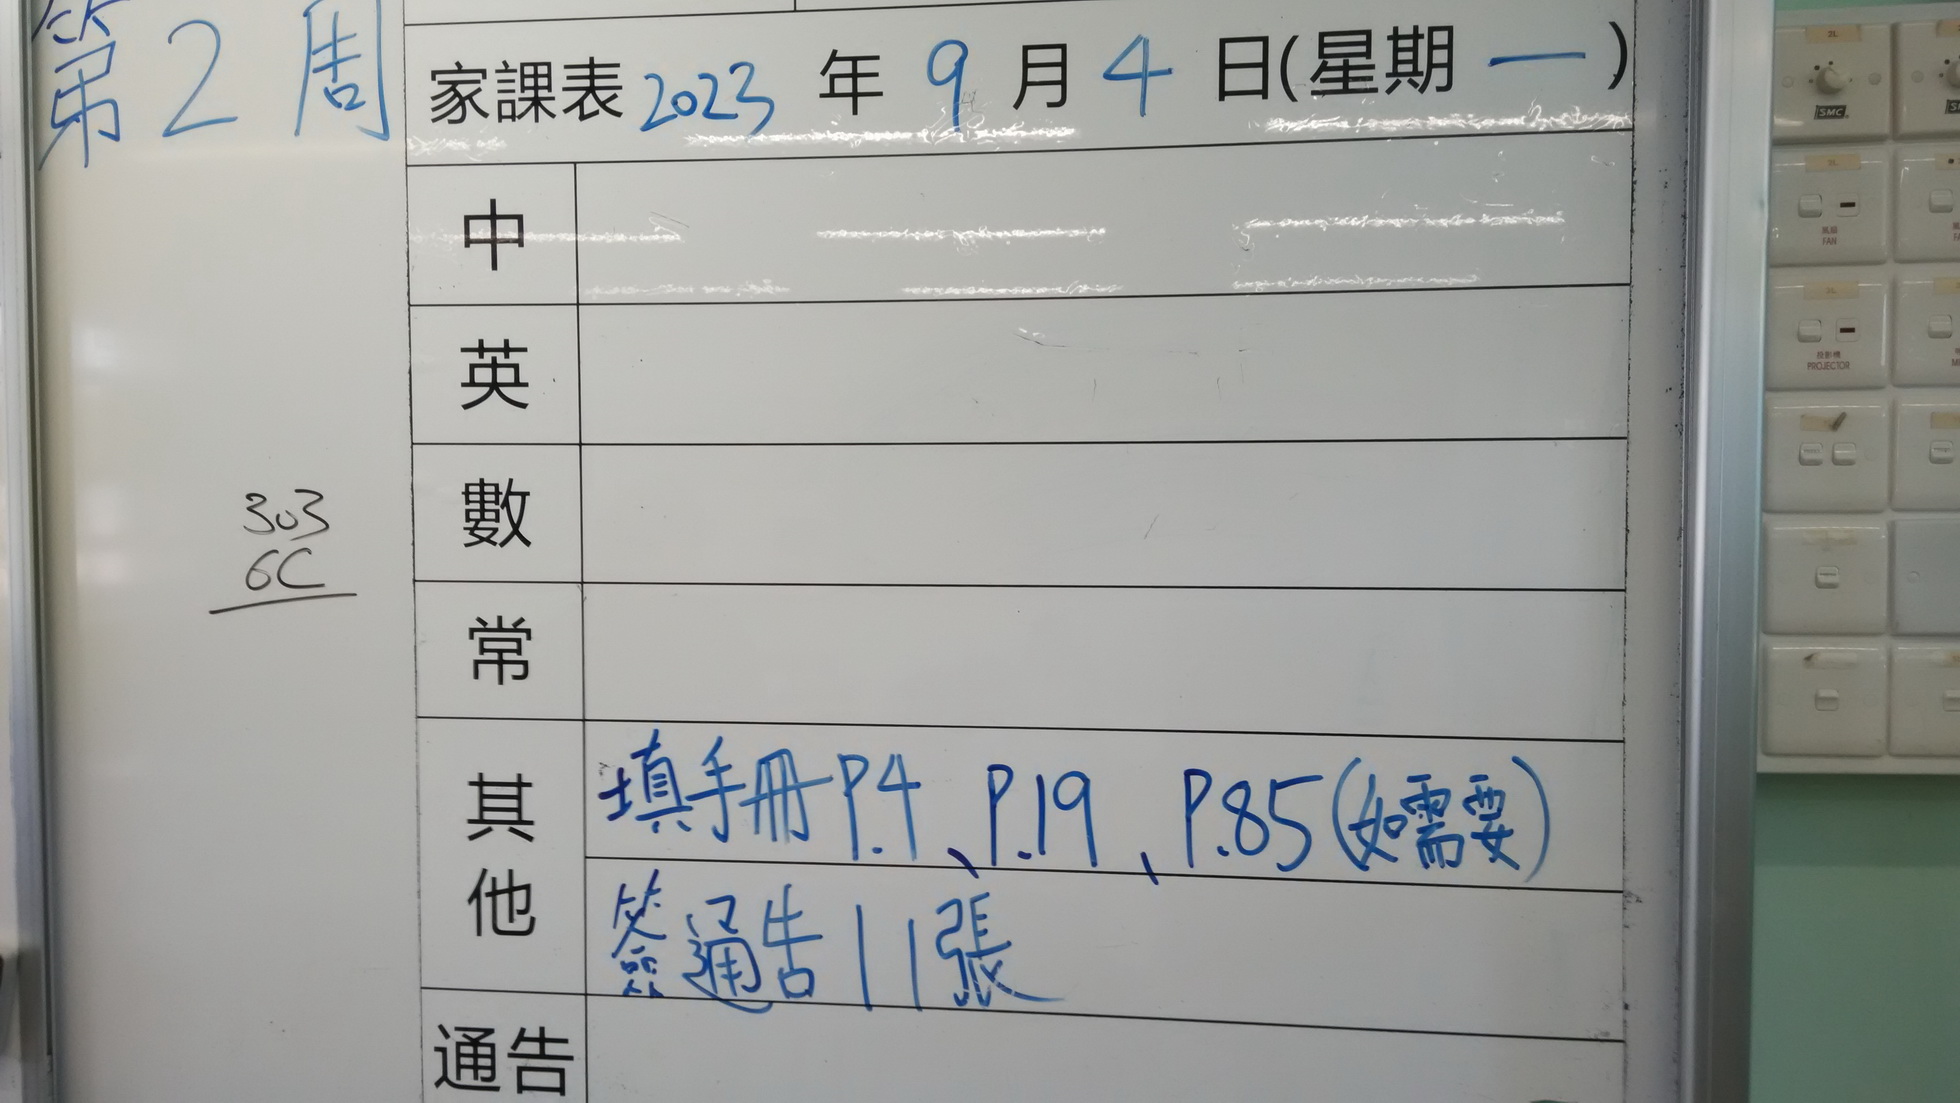 第2周
家課表2023年9月4日(星期一)
中
英
數
303
6C
常
其他
填手冊P.4、P.19、P.85(如需要)
簽通告11張
通告
2L
SMC
3L
風扇
FAN
2L
投影機
PROJECTOR